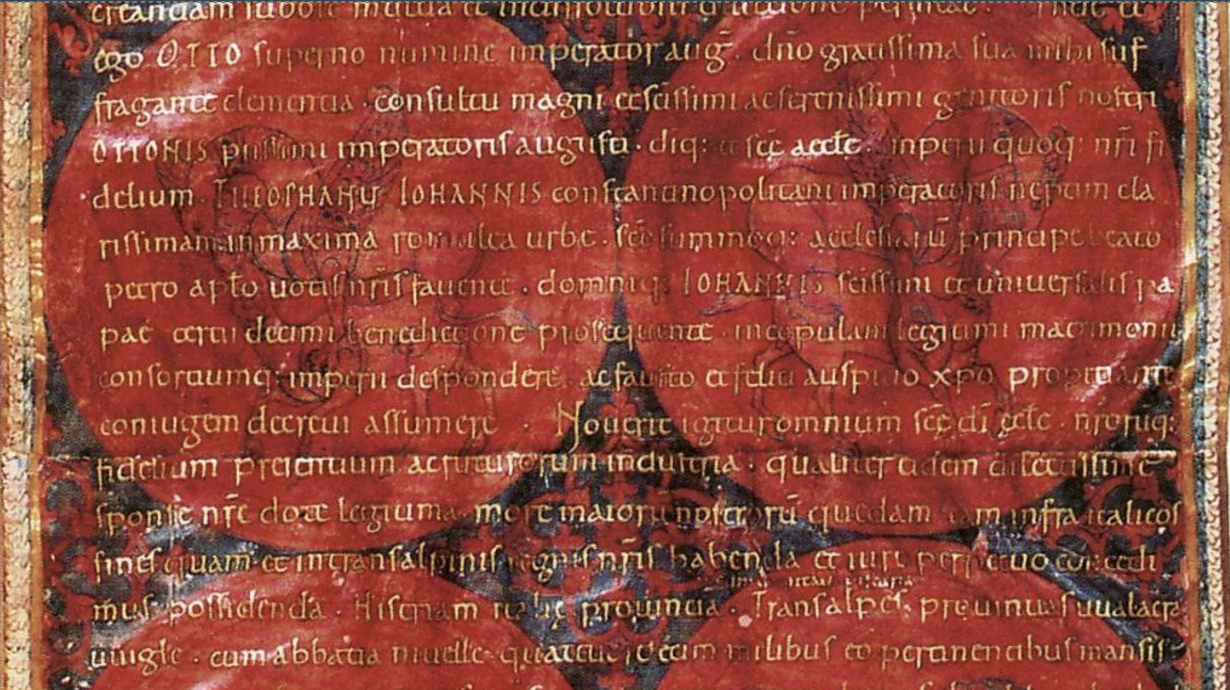 creandam subole mutua et indissolubili
ego OTTO superno numine imperator aug. dno gratissima sua mihi suf
fragante clementia. consultu magni et scissimi ac serenissimi genitoris nostri
OTTONIS piissimi imperatoris augusti. diq: et sce aecle. inperii quoq: nri fi
delium. THEOPHANU IOHANNIS constantinopolitani imperatoris neptim cla
rissimam in maxima romulea urbe. sco summoq: aecclesiarū principe beato
petro apto uotis nris fauente. domniq: IOHANNIS scissimi et uniuersalis pa
pae tertii decimi benedictione prosequente. in copulam legitimi matrimonii
consortiumq: imperii despondere. ac fausto et felici auspitio xpo propitiante
coniugem decreui assumere. Nouerit igitur omnium sce di aecle. nrorūq:
fidelium presentium ac futurorum industria. qualiter eidem dilectissime
sponse nre dote legitima. more maiorū nostrorū quedam tam infra italicos
fines quam et in transalpinis regnis nris habenda et iure perpetuo concedi
mus possidenda. Histriam italie prouincia. Transalpes. preuintias uualacra
uuigle. cum abbatia niuelle. quattuordecim milibus eo pertinentibus mansis